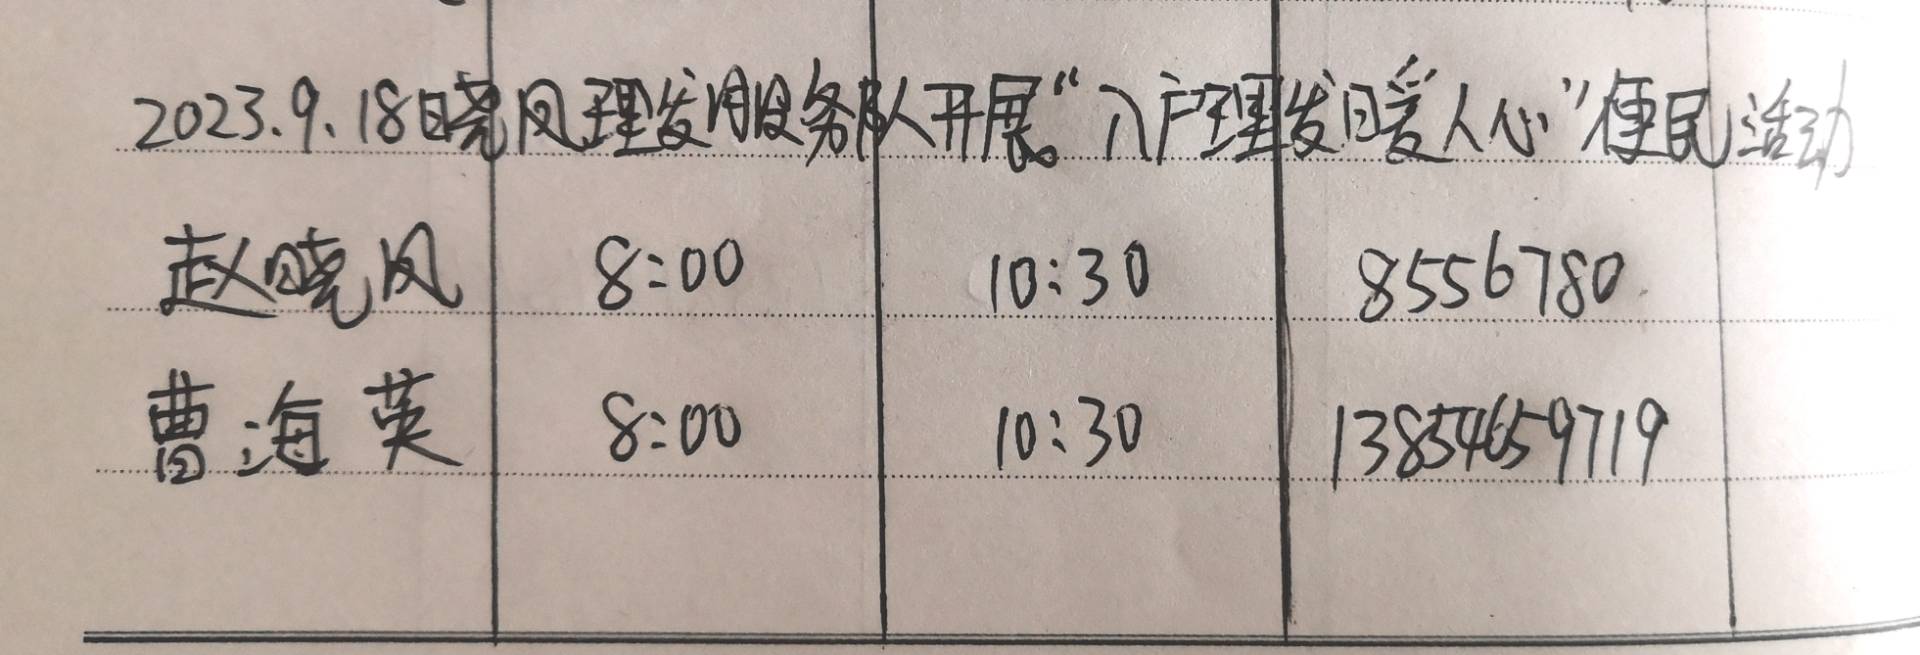 2023.9.18日晓风理发服务队开展“入户理发暖人心”便民活动
赵晓风 8:00 10:30 8556780
曹海英 8:00 10:30 13854659719